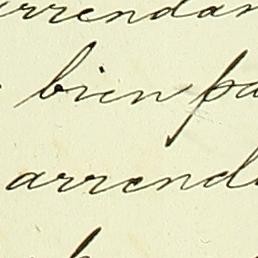 rrendan
bien pa
arrend